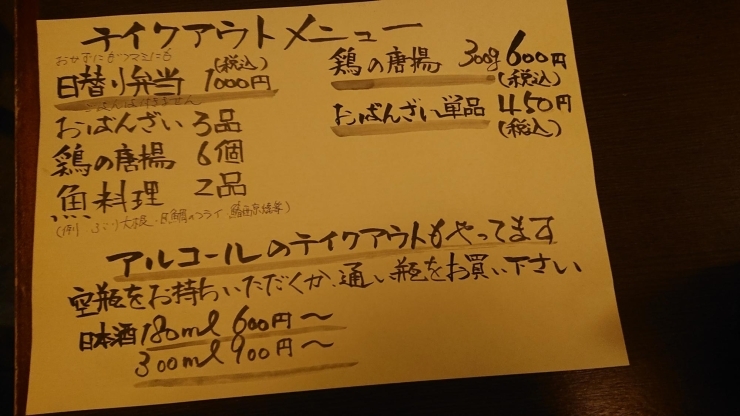 テイクアウトメニュー
おかずに もツマミにも
日替り弁当 (税込) 1000円
ごはんは付きません
おばんざい 3品
鶏の唐揚 6個
魚料理 2品
鶏の唐揚 300g 600円
(税込)
おばんざい単品 450円
(税込)
アルコールのテイクアウトもやってます
空瓶をお持ちいただくか、通い瓶をお買い下さい
日本酒 180ml 600円〜
300ml 900円〜